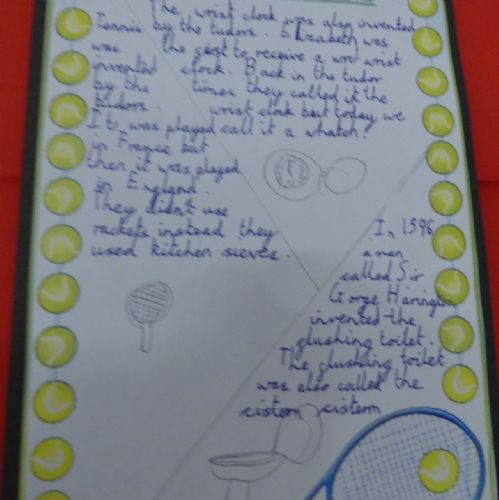 The wrist clock was also invented
by the tudors. Elizabeth was
the first to receive a wrist
clock. Back in the tudor
times they called it the
wrist clock but today we
call it a whatch.
Tennis
was
invented
by the
tudors.
It was played
in France but
then it was played
in England.
They didn't use
rackets instead they
used kitchen sieves.
In 1596
a man
called Sir
Gorge Harington
invented the
flushing toilet.
The flushing toilet
was also called the
cistern cistern